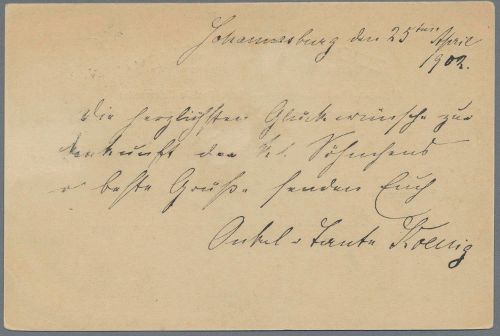 Johannesburg den 25ten April
1902.
die herzlichsten Glückwünsche zur
Ankunft des Söhnchens
u beste Grüße senden Euch
Onkel u Tante Koenig